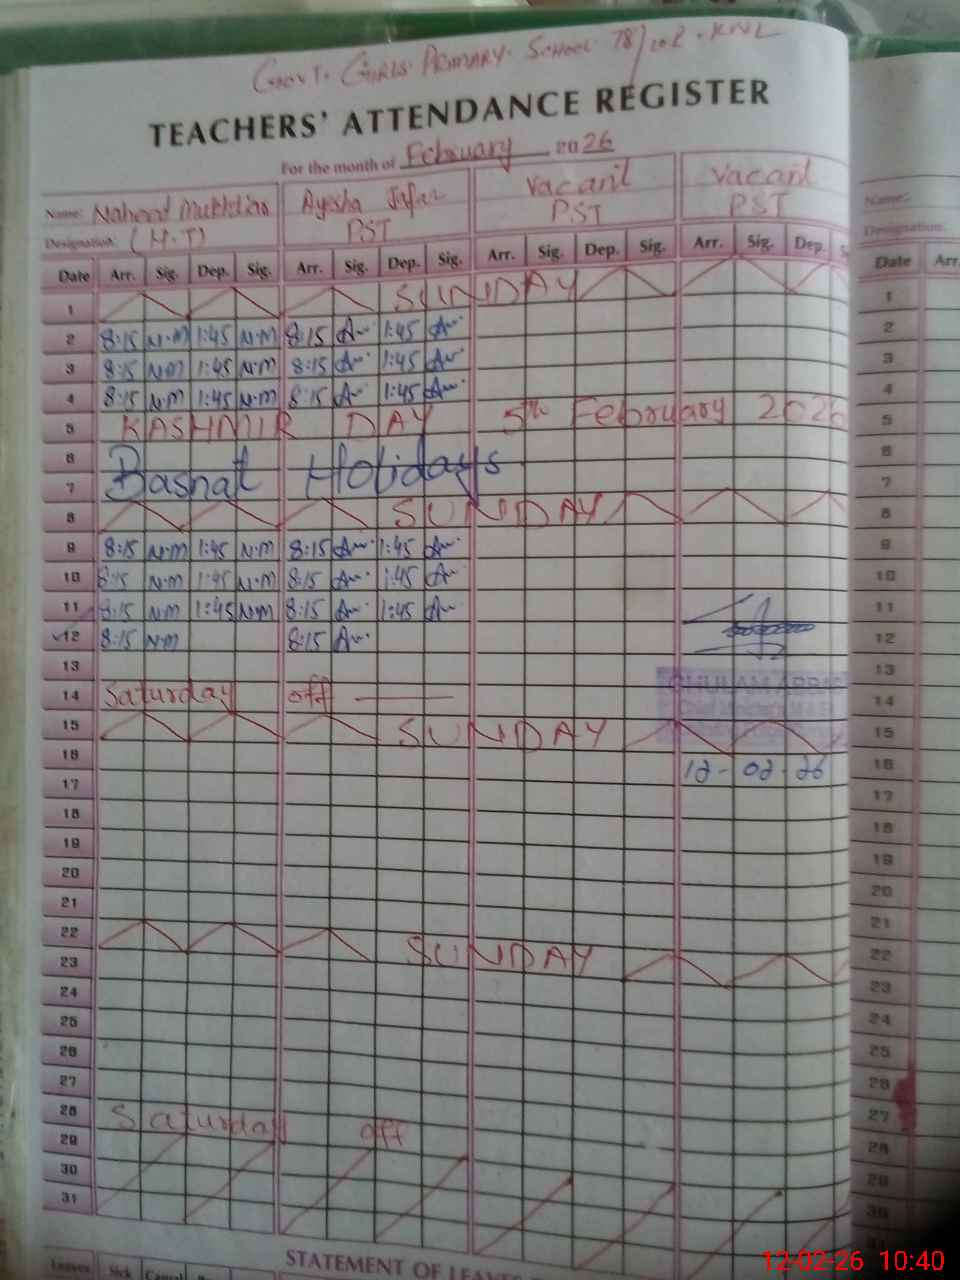 GOVT. GIRLS PRIMARY SCHOOL 78/10.R. KNL
TEACHERS' ATTENDANCE REGISTER
For the month of February 2026
Name: Naheed Mukhtiar Ayesha Jafar Vacant Vacant
Designation: (H.T) PST PST PST
Date Arr. Sig. Dep. Sig. Arr. Sig. Dep. Sig. Arr. Sig. Dep. Sig. Arr. Sig. Dep.
1 SUNDAY
2 8:15 N.M 1:45 N.M 8:15 1:45
3 8:15 N.M 1:45 N.M 8:15 1:45
4 8:15 N.M 1:45 N.M 8:15 1:45
5 KASHMIR DAY 5th February 2026
6 Basnat Holidays
7
8 SUNDAY
9 8:15 N.M 1:45 N.M 8:15 1:45
10 8:15 N.M 1:45 N.M 8:15 1:45
11 8:15 N.M 1:45 N.M 8:15 1:45
12 8:15 N.M 8:15
13
14 Saturday off
GHULAM ABBAS
15 SUNDAY
16 12-02-26
17
18
19
20
21
22 SUNDAY
23
24
25
26
27
28 Saturday off
29
30
31
STATEMENT OF LEAVES
Leaves Sick Casual
Name:
Designation:
Date Arr.
1
2
3
4
5
6
7
8
9
10
11
12
13
14
15
16
17
18
19
20
21
22
23
24
25
26
27
28
29
30
12-02-26 10:40